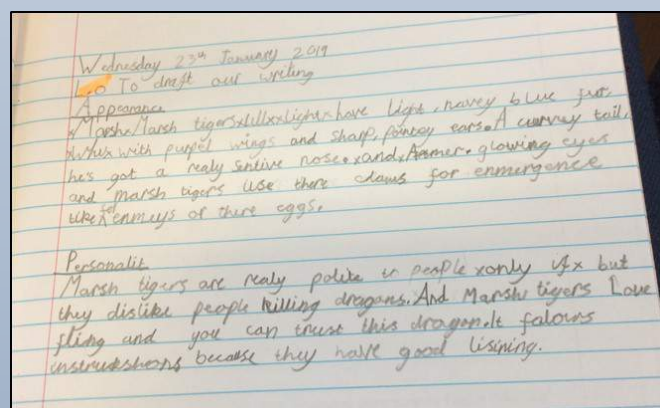 Wednesday 23rd January 2019
L.o To draft our writing
Appearance
Marsh tigers have light, navey blue fur
with purpel wings and sharp, pointey ears. A curvey tail,
hes got a realy sentive nose. and glowing eyes
and marsh tigers use there claws for enmergence
like for enmeys of there eggs.
Personalit
Marsh tigers are realy polite people only but
they dislike people killing dragons. And Marsh tigers Love
fling and you can trust this dragon. It falours
instruckshons because they have good lisining.